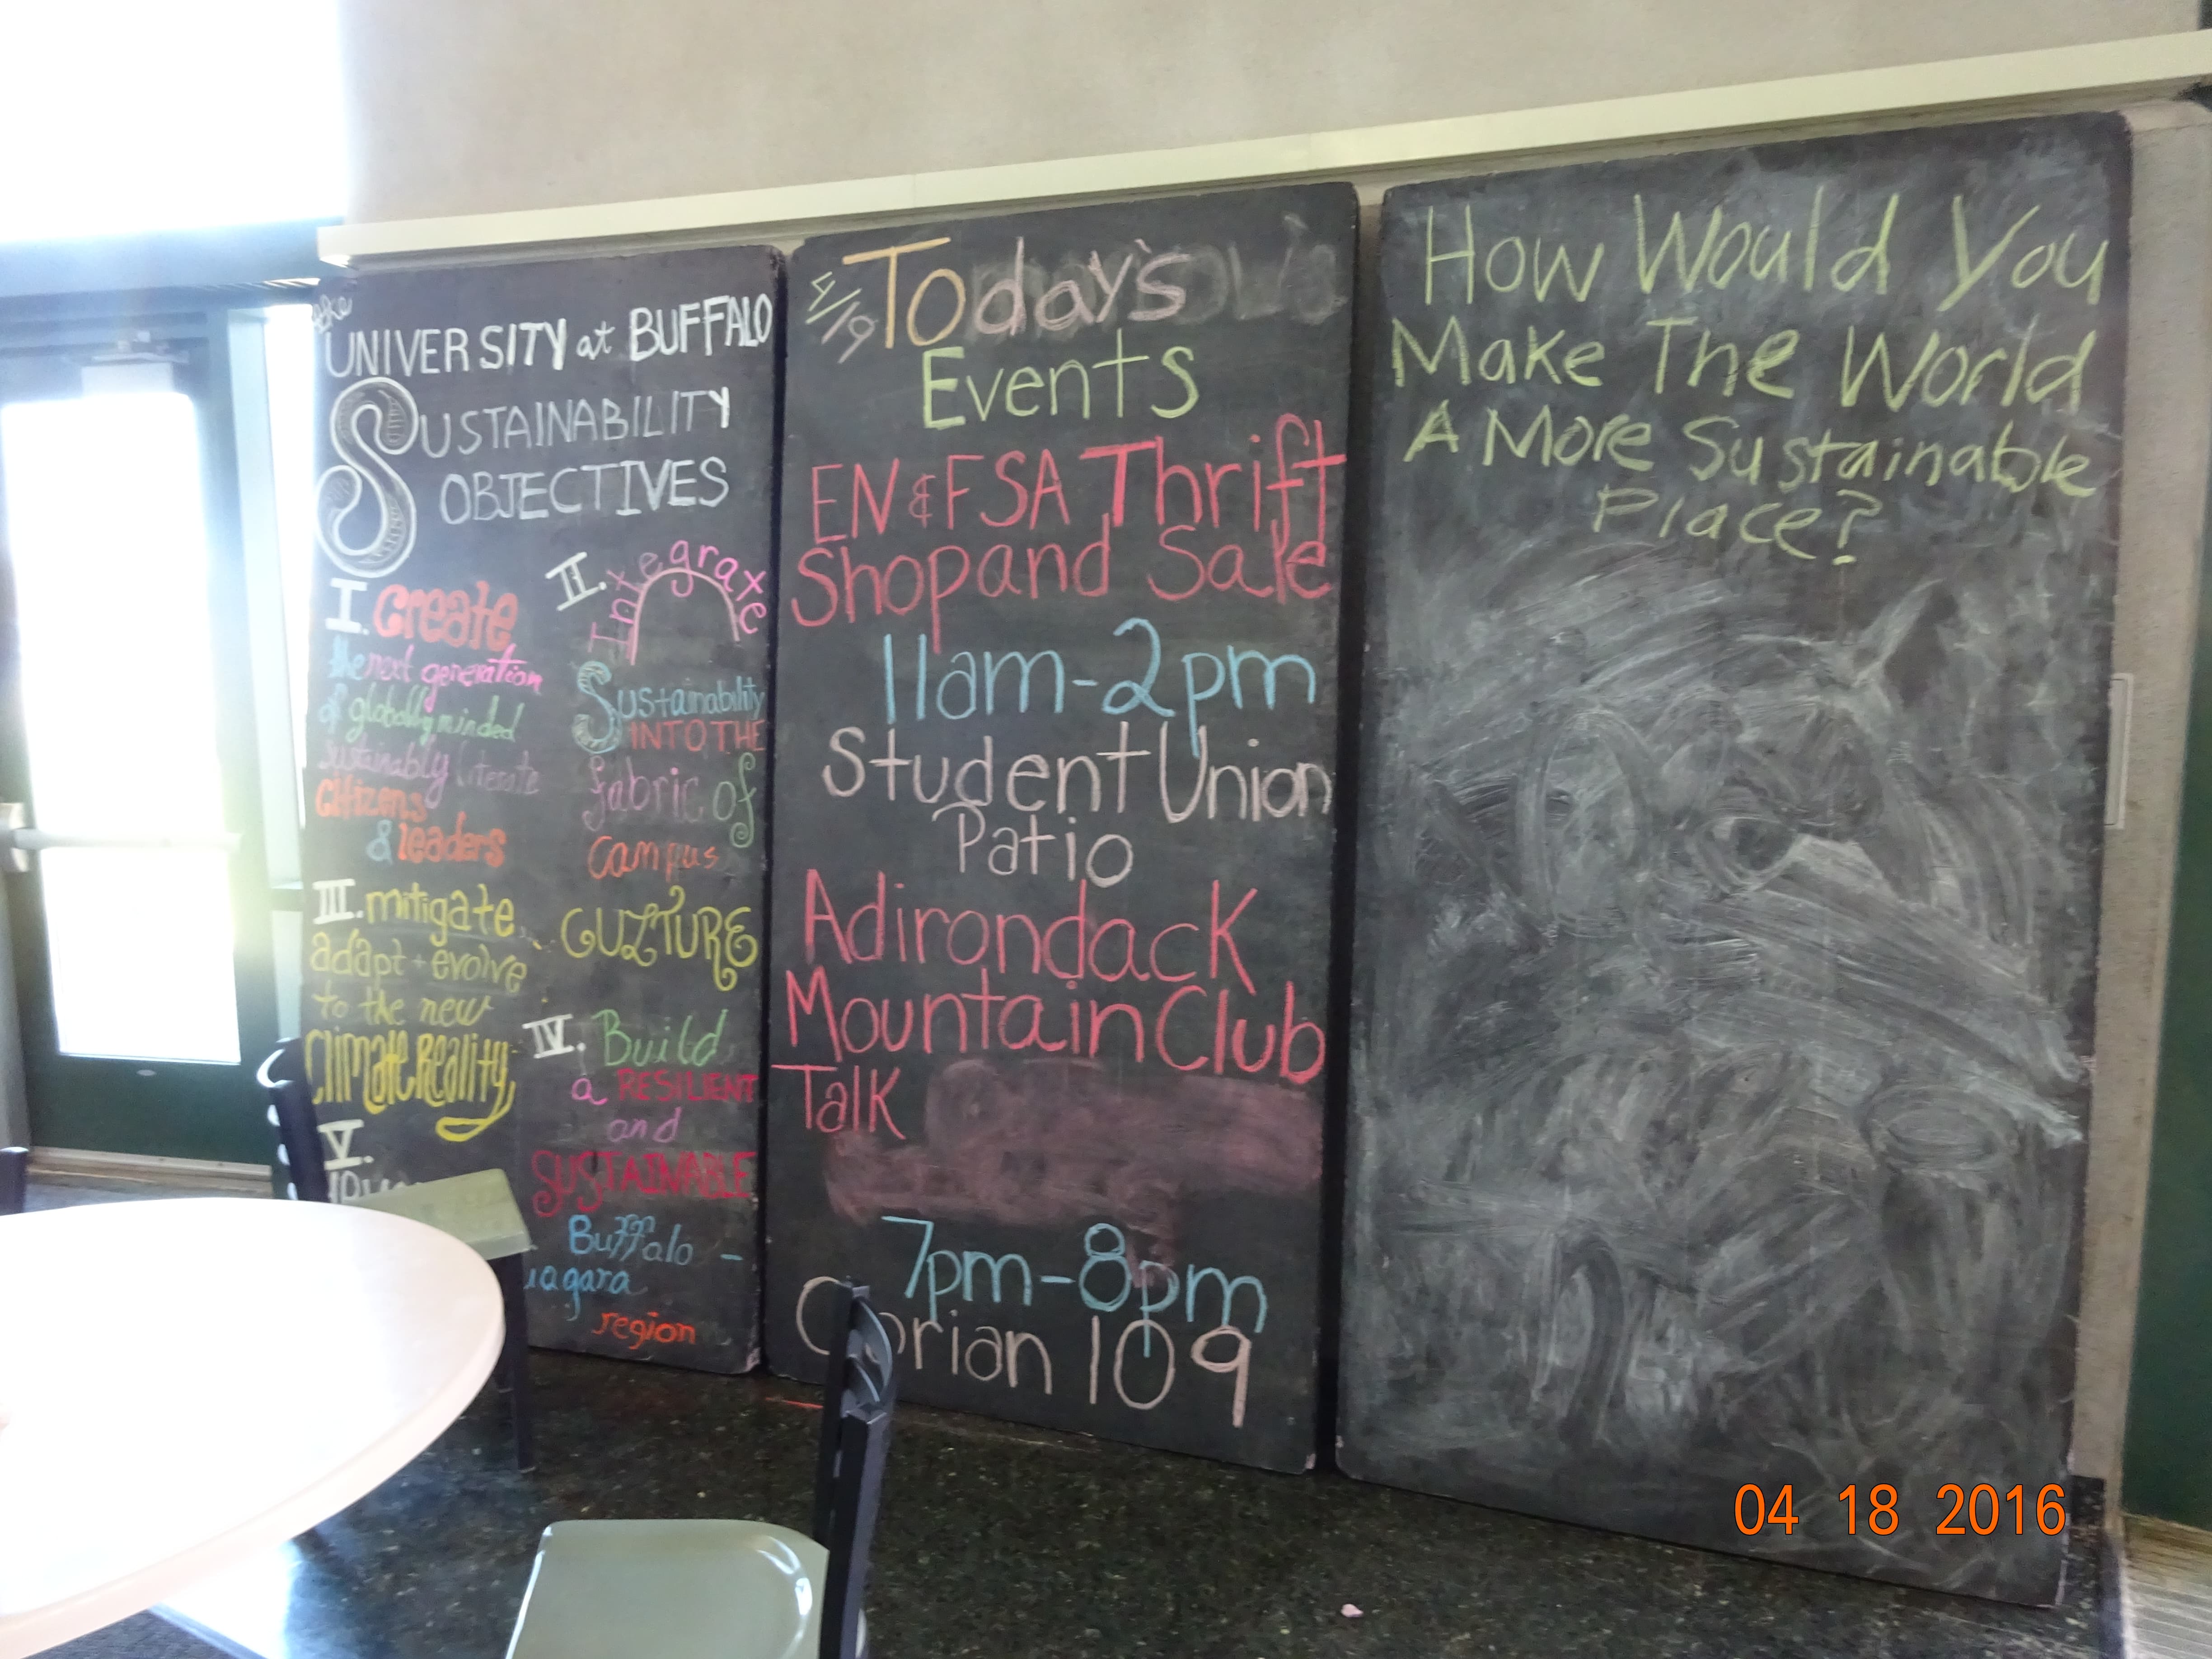 the
UNIVERSITY at BUFFALO
SUSTAINABILITY
OBJECTIVES
I. Create
the next generation
of globally minded
sustainably literate
citizens
& leaders
II. Integrate
Sustainability
INTO THE
fabric of
campus
CULTURE
III. mitigate
adapt + evolve
to the new
Climate Reality
IV. Build
a RESILIENT
and
SUSTAINABLE
Buffalo -
iagara
region
V.
4/19 Today's
Events
EN & FSA Thrift
Shop and Sale
11am-2pm
Student Union
Patio
Adirondack
Mountain Club
Talk
7pm-8pm
orian 109
How Would You
Make The World
A More Sustainable
Place?
04 18 2016